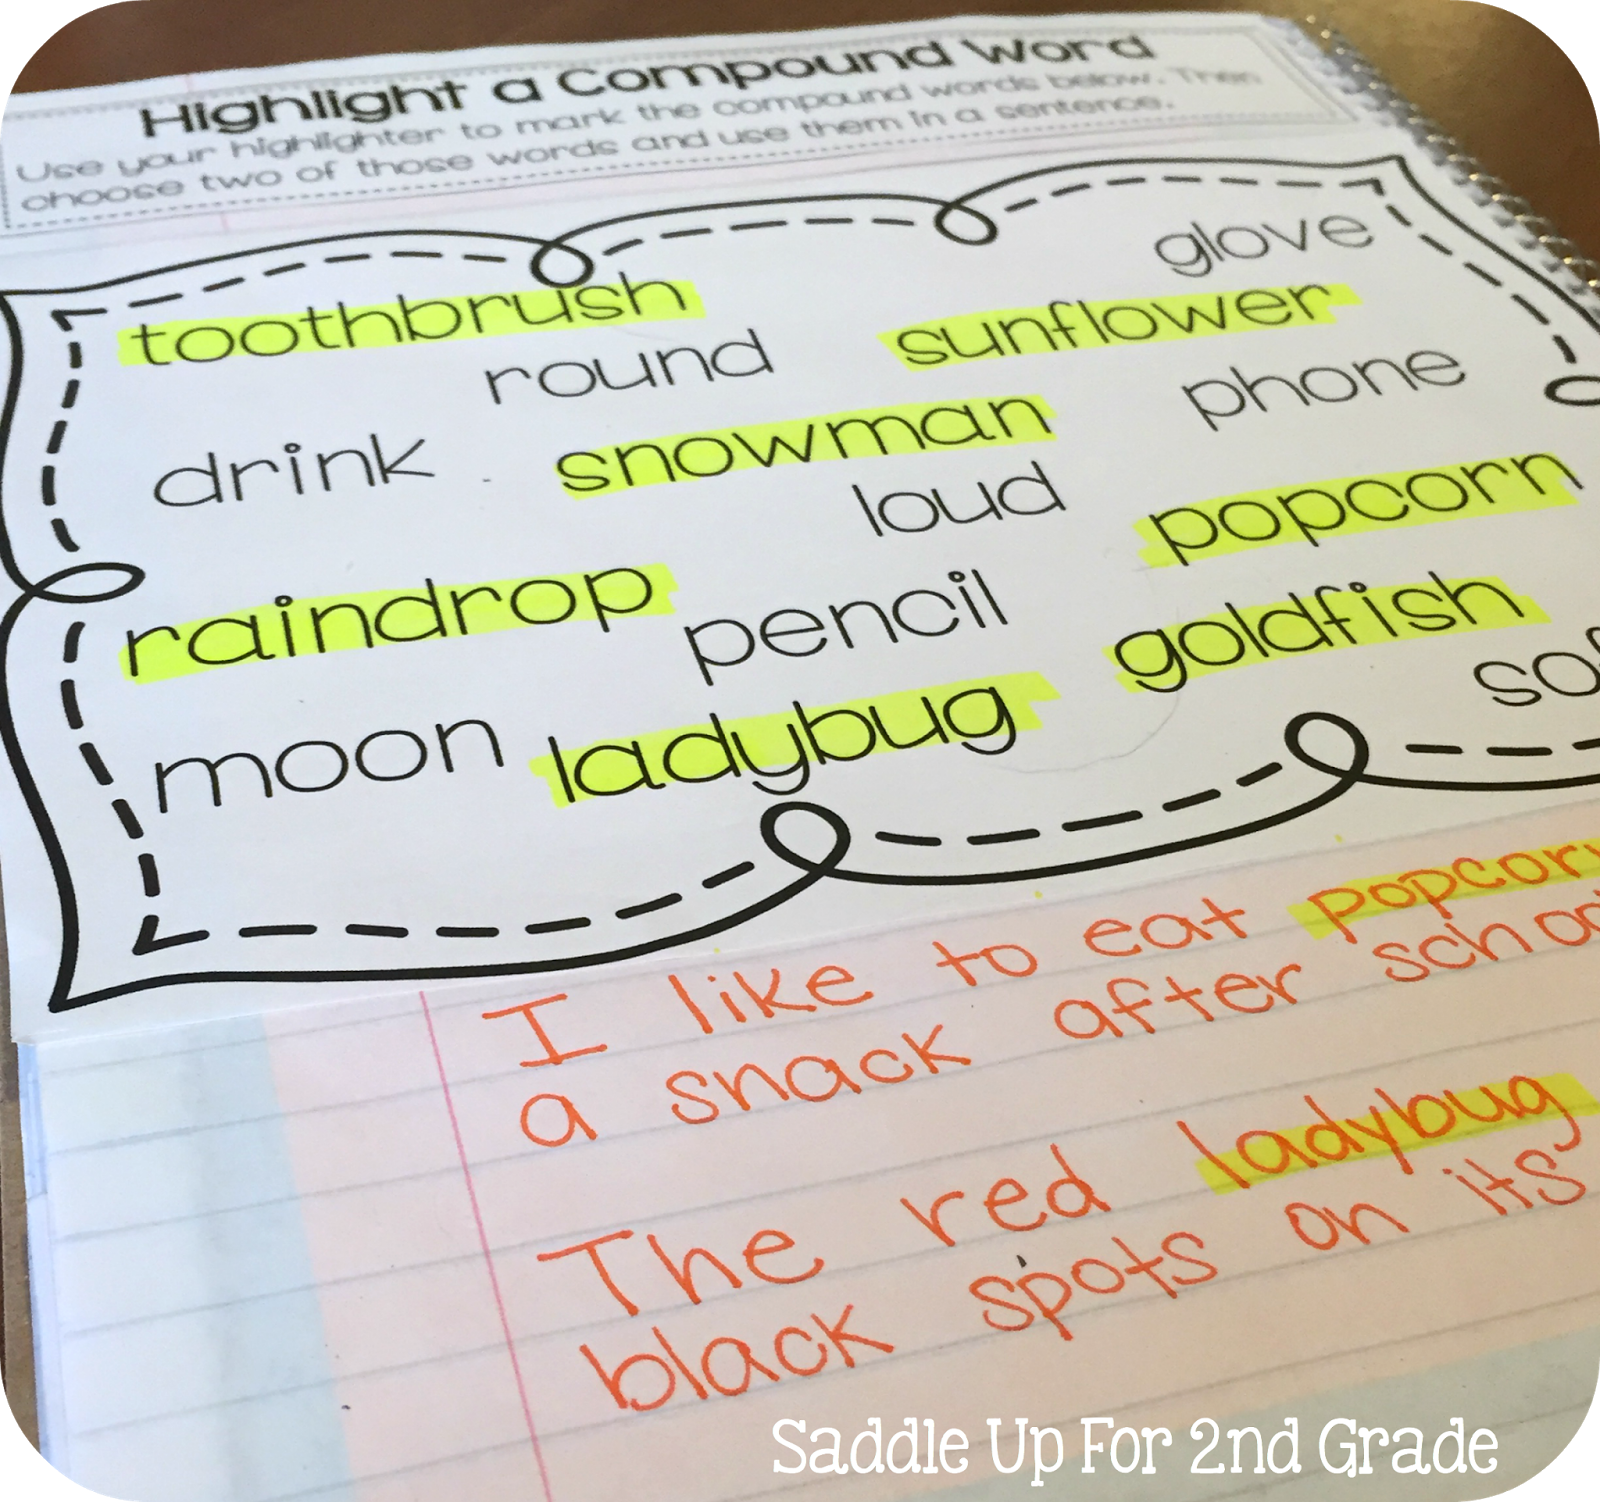 Highlight a Compound Word
Use your highlighter to mark the compound words below. Then
choose two of those words and use them in a sentence.
glove
toothbrush
sunflower
round
phone
drink
snowman
loud
popcorn
raindrop
pencil
goldfish
moon
ladybug
I like to eat popcorn
a snack after
The red ladybug
black spots on its
Saddle Up For 2nd Grade